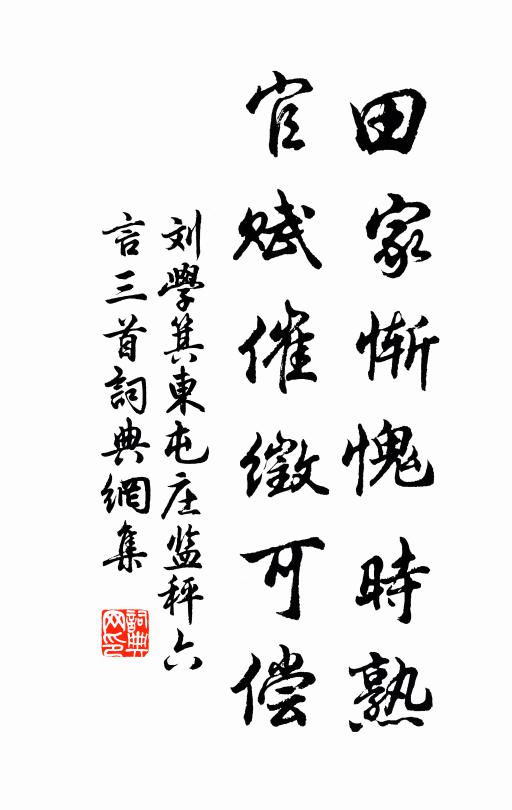 田家慚愧時熟
官赋催徵可偿
刘學箕東屯庄监秤六
言三首詞典網集
詞典
网印